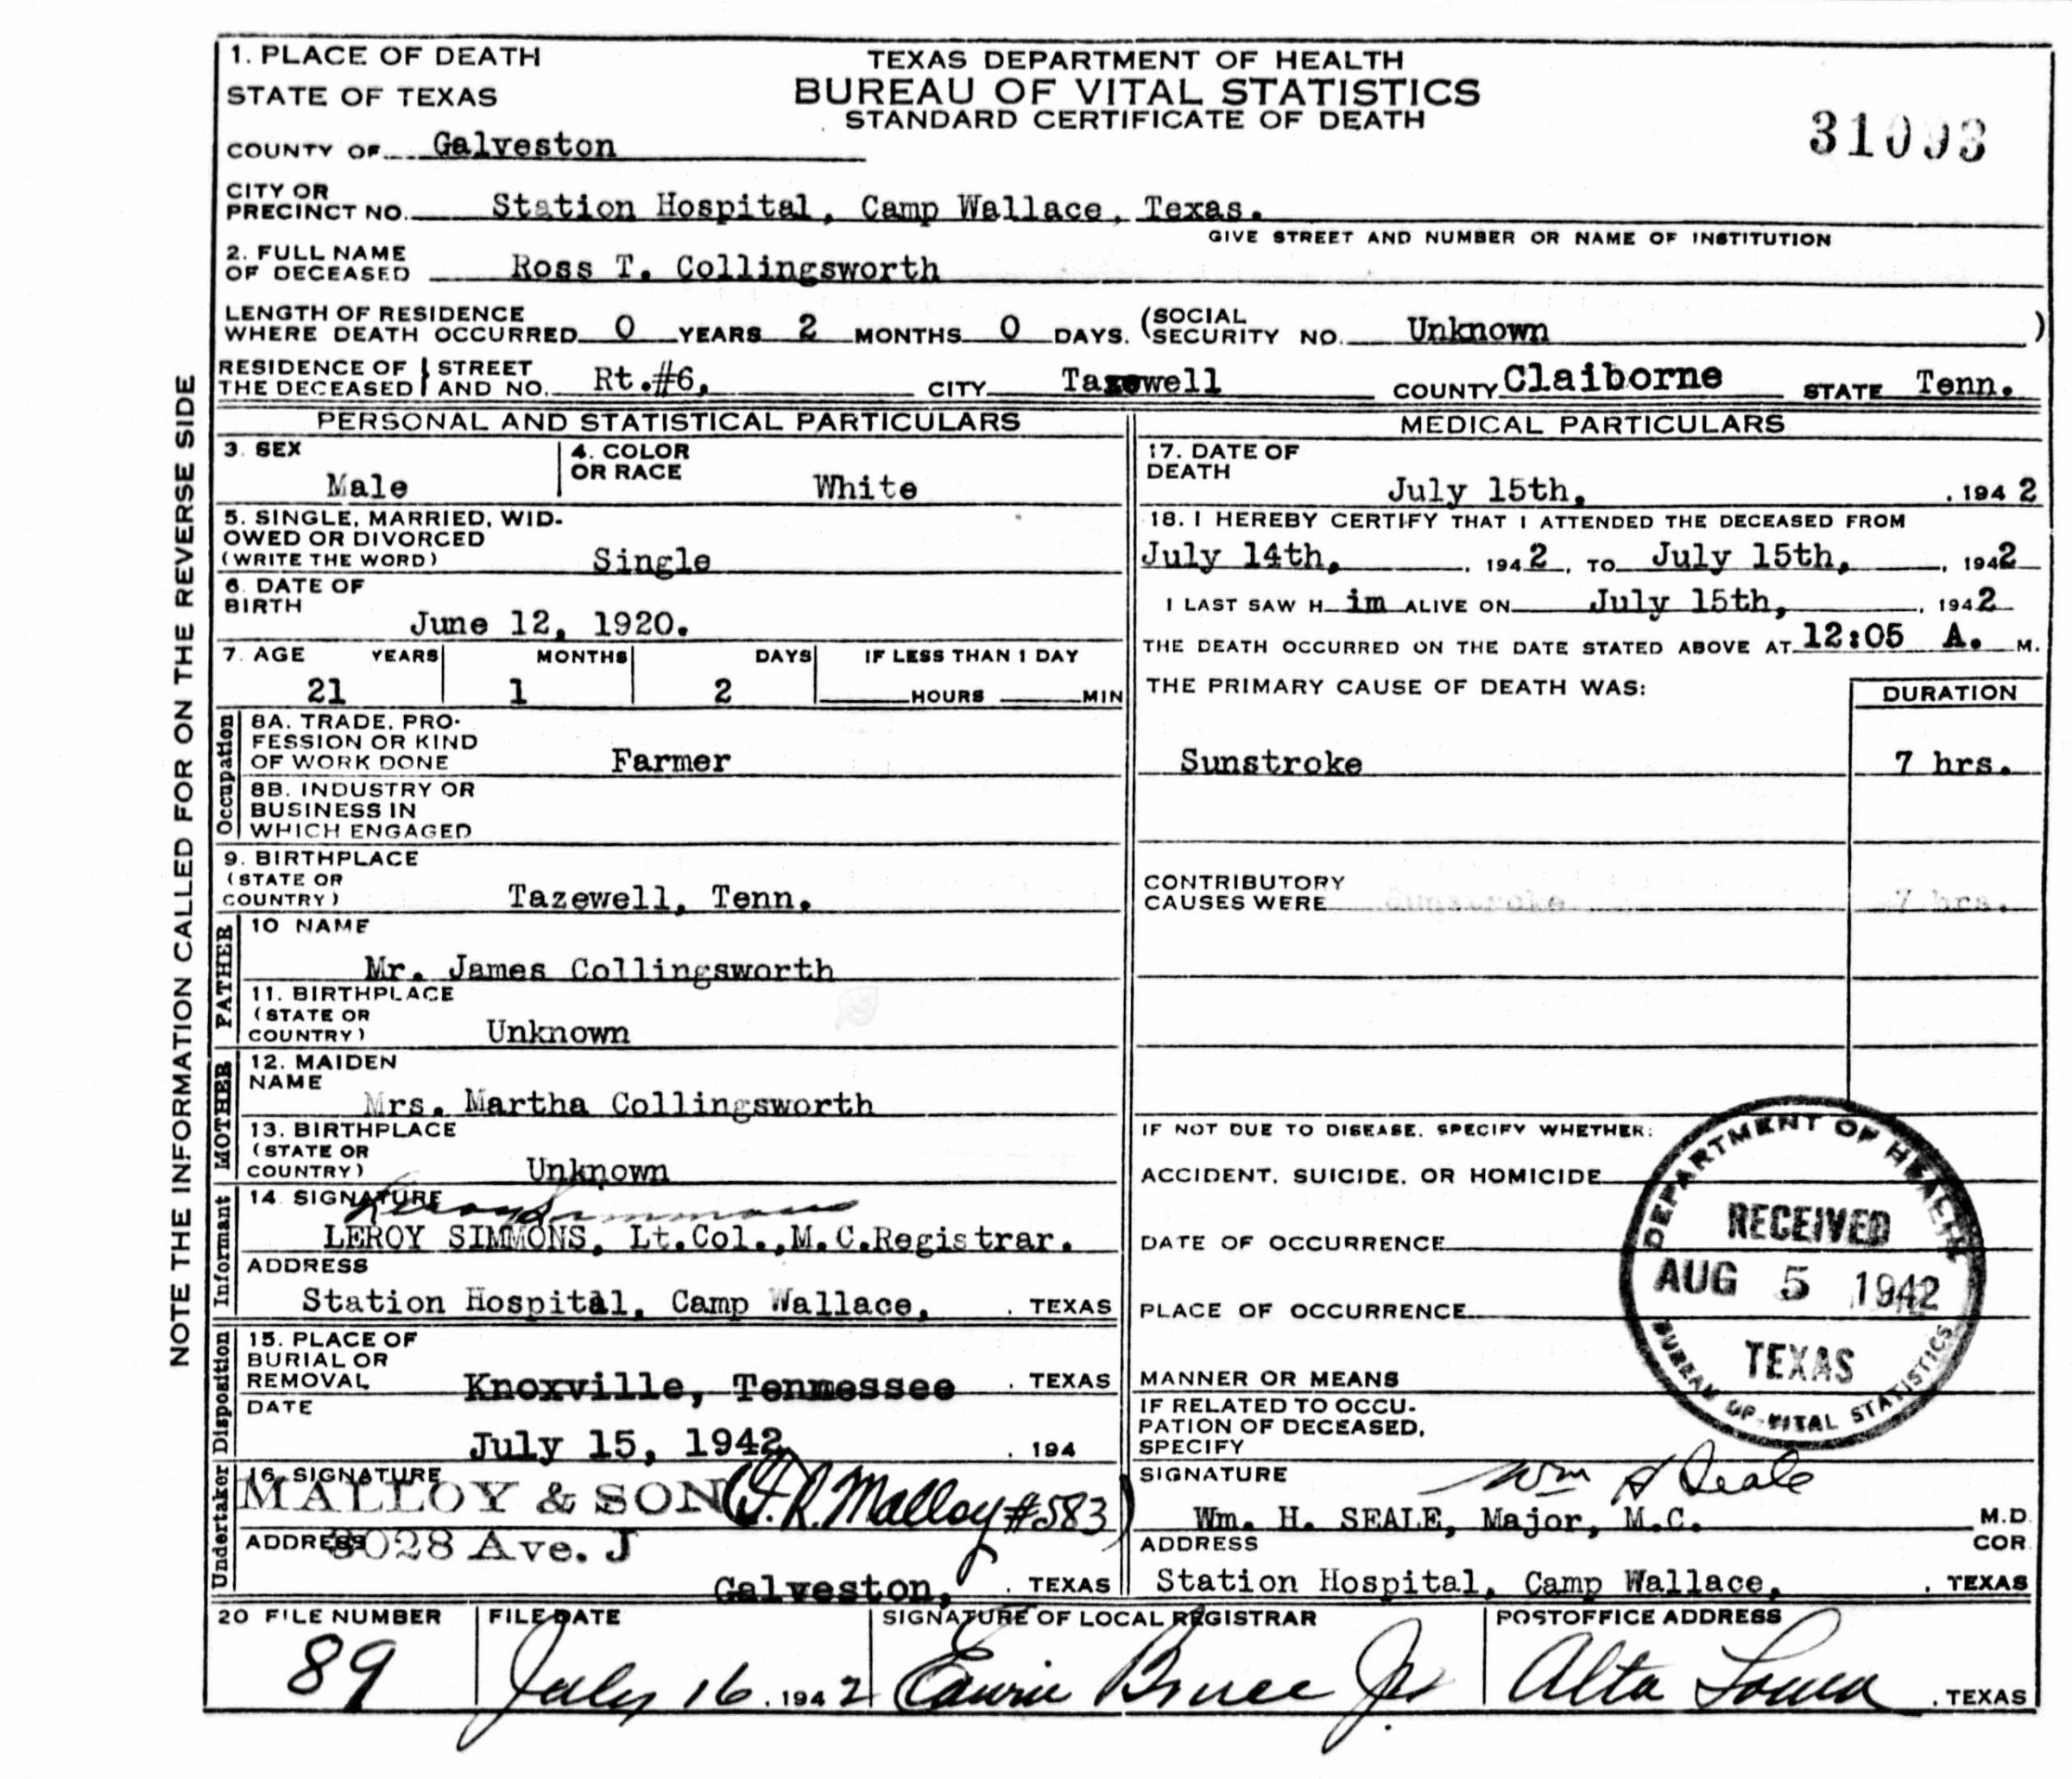 1. PLACE OF DEATH
STATE OF TEXAS
COUNTY OF Galveston
TEXAS DEPARTMENT OF HEALTH
BUREAU OF VITAL STATISTICS
STANDARD CERTIFICATE OF DEATH
31093
CITY OR
PRECINCT NO. Station Hospital, Camp Wallace, Texas.
GIVE STREET AND NUMBER OR NAME OF INSTITUTION
2. FULL NAME
OF DECEASED Ross T. Collingsworth
LENGTH OF RESIDENCE
WHERE DEATH OCCURRED 0 YEARS 2 MONTHS 0 DAYS. (SOCIAL SECURITY NO. Unknown )
RESIDENCE OF THE DECEASED STREET AND NO. Rt.#6, CITY Tazewell COUNTY Claiborne STATE Tenn.
NOTE THE INFORMATION CALLED FOR ON THE REVERSE SIDE
PERSONAL AND STATISTICAL PARTICULARS
3. SEX
Male
4. COLOR
OR RACE
White
5. SINGLE, MARRIED, WID-
OWED OR DIVORCED
(WRITE THE WORD) Single
6. DATE OF
BIRTH
June 12, 1920.
7. AGE YEARS MONTHS DAYS IF LESS THAN 1 DAY
21 1 2 HOURS MIN
Occupation
8A. TRADE, PRO-
FESSION OR KIND
OF WORK DONE Farmer
8B. INDUSTRY OR
BUSINESS IN
WHICH ENGAGED
9. BIRTHPLACE
(STATE OR
COUNTRY) Tazewell, Tenn.
FATHER
10 NAME
Mr. James Collingsworth
11. BIRTHPLACE
(STATE OR
COUNTRY) Unknown
MOTHER
12. MAIDEN
NAME
Mrs. Martha Collingsworth
13. BIRTHPLACE
(STATE OR
COUNTRY) Unknown
Informant
14. SIGNATURE
Leroy Simmons
LEROY SIMMONS, Lt.Col.,M.C.Registrar.
ADDRESS
Station Hospital, Camp Wallace, . TEXAS
Disposition
15. PLACE OF
BURIAL OR
REMOVAL Knoxville, Tennessee . TEXAS
DATE
July 15, 1942 . 194
Undertaker
16. SIGNATURE
MALLOY & SON (F.R. Malloy #583)
ADDRESS 3028 Ave. J
Galveston, . TEXAS
MEDICAL PARTICULARS
17. DATE OF
DEATH
July 15th, , 1942
18. I HEREBY CERTIFY THAT I ATTENDED THE DECEASED FROM
July 14th, , 1942, TO July 15th, , 1942
I LAST SAW H im ALIVE ON July 15th, , 1942
THE DEATH OCCURRED ON THE DATE STATED ABOVE AT 12:05 A. M.
THE PRIMARY CAUSE OF DEATH WAS: DURATION
Sunstroke 7 hrs.
CONTRIBUTORY
CAUSES WERE Sunstroke 7 hrs.
IF NOT DUE TO DISEASE, SPECIFY WHETHER:
ACCIDENT, SUICIDE, OR HOMICIDE
DATE OF OCCURRENCE
PLACE OF OCCURRENCE
MANNER OR MEANS
IF RELATED TO OCCU-
PATION OF DECEASED,
SPECIFY
DEPARTMENT OF HEALTH
RECEIVED
AUG 5 1942
TEXAS
BUREAU OF VITAL STATISTICS
SIGNATURE Wm H Seale
Wm. H. SEALE, Major, M.C. M.D.
ADDRESS COR.
Station Hospital, Camp Wallace, . TEXAS
20 FILE NUMBER
89
FILE DATE
July 16, 1942
SIGNATURE OF LOCAL REGISTRAR
Bruce Jr
POSTOFFICE ADDRESS
Alta Loma , TEXAS